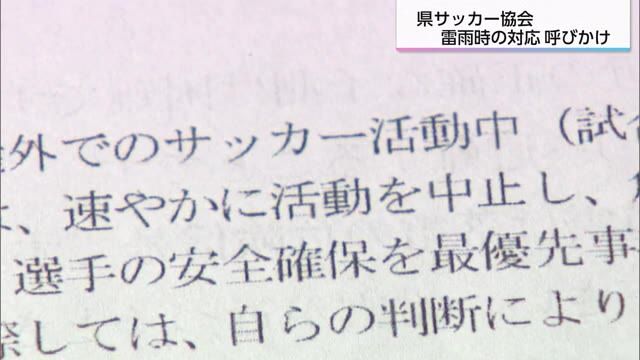 県サッカー協会
雷雨時の対応 呼びかけ
外でのサッカー活動中（試合
、速やかに活動を中止し、
選手の安全確保を最優先事
際しては、自らの判断により